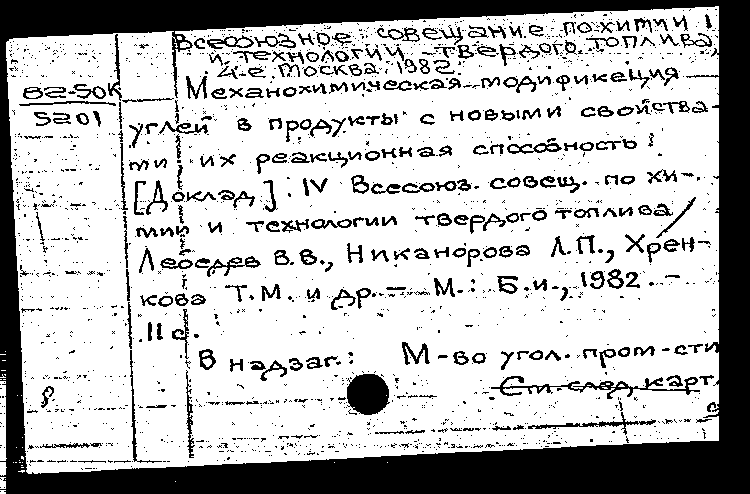 Всесоюзное совещание по химии
и технологии твердого топлива,
4-е. Москва. 1982.
82-50К
5201
Механохимическая модификация
углей в продукты с новыми свойства-
ми, их реакционная способность:
[Доклад]. IV Всесоюз. совещ. по хи-
мии и технологии твердого топлива /
Лебедев В.В., Никанорова Л.П., Хрен-
кова Т.М. и др. — М.: Б.и., 1982. —
11 с.
В надзаг.: М-во угол. пром-сти
См. след. карт.